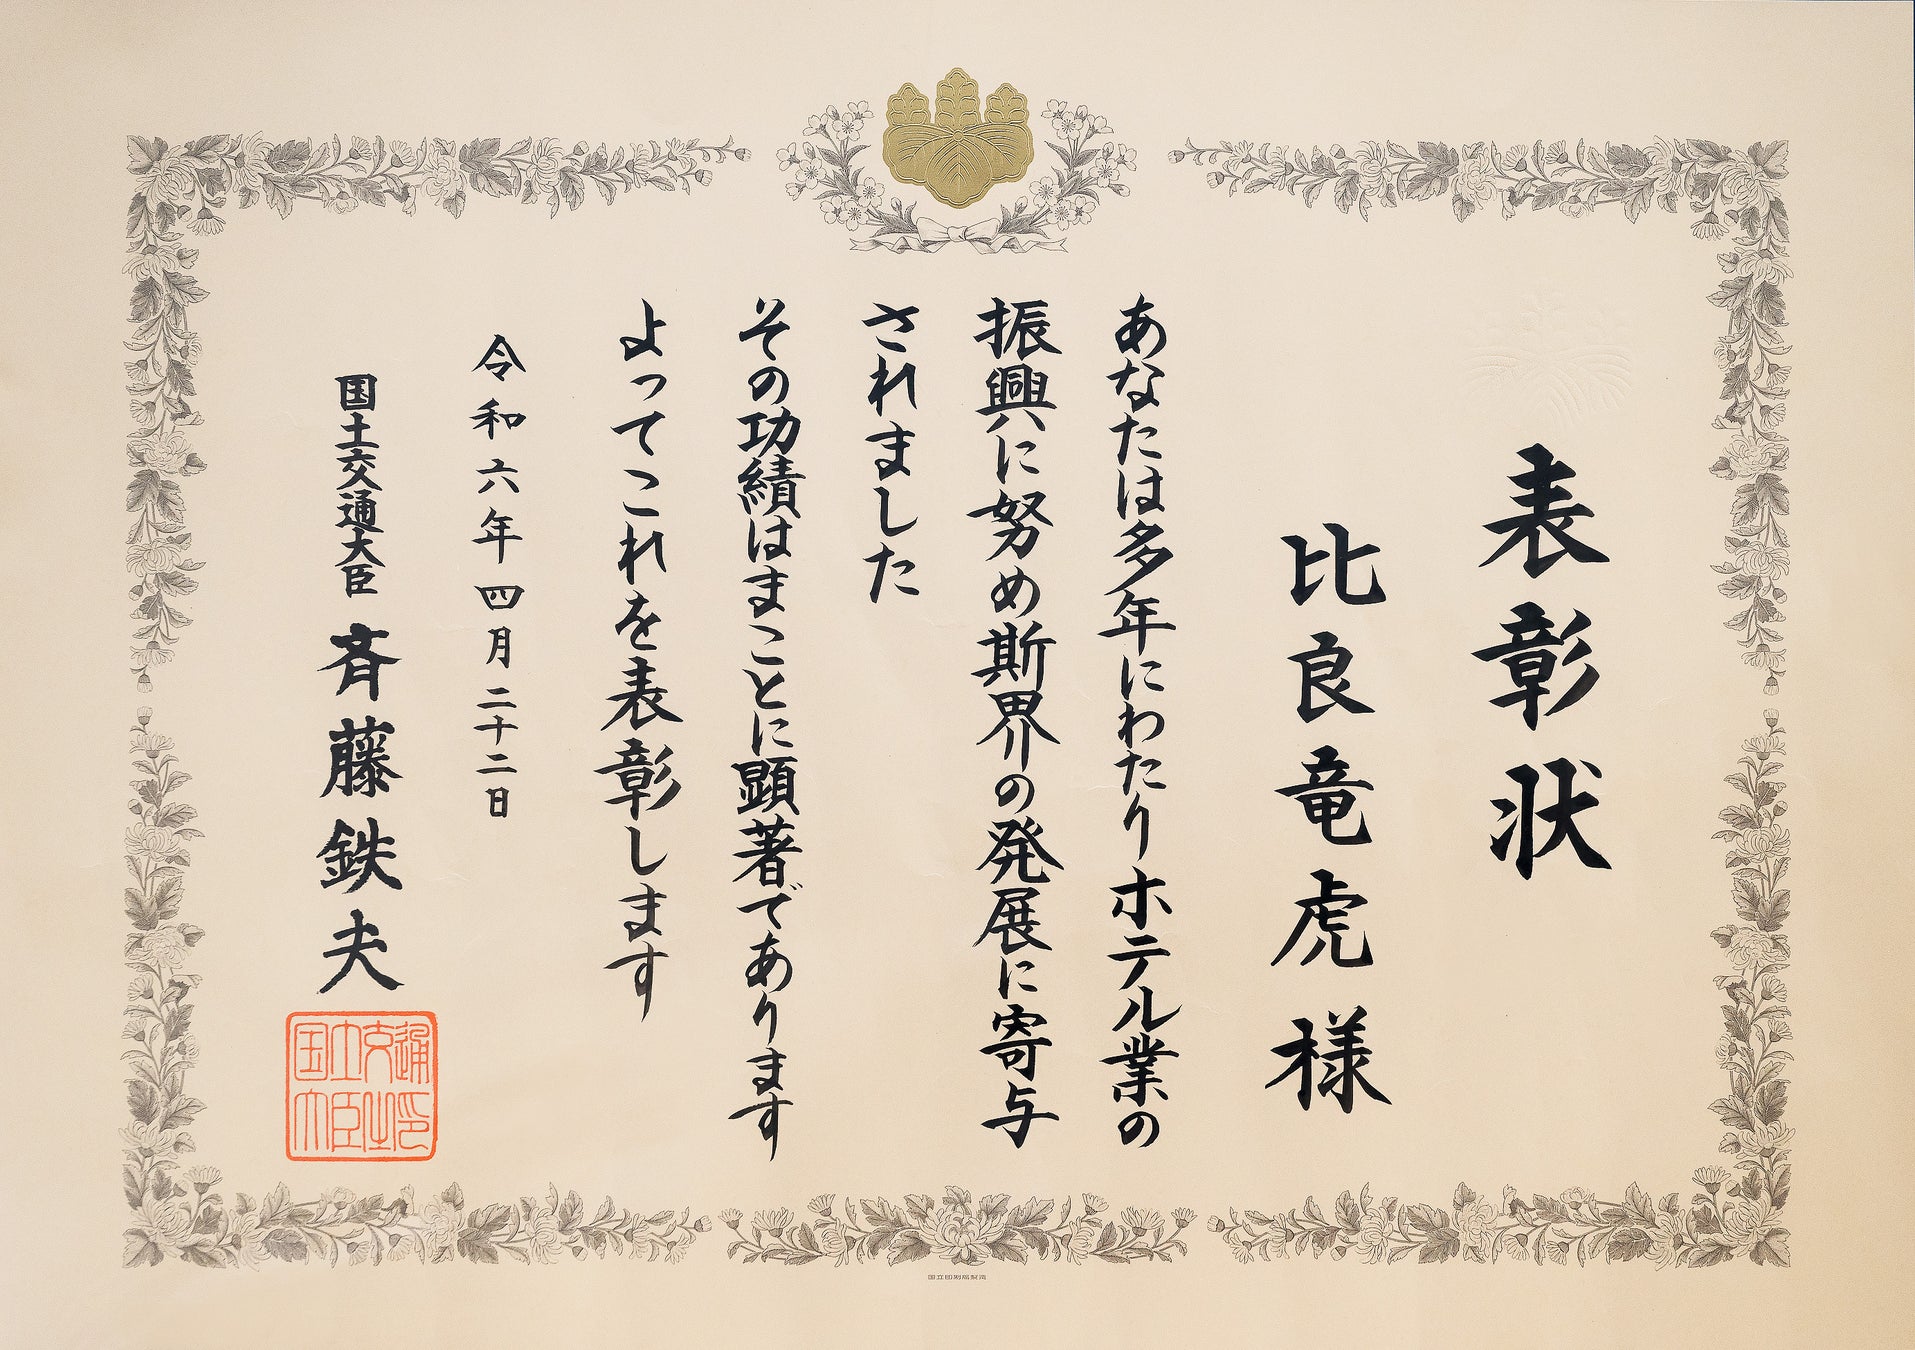 表彰状
比良竜虎様
あなたは多年にわたりホテル業の
振興に努め斯界の発展に寄与
されました
その功績はまことに顕著であります
よってこれを表彰します
令和六年四月二十二日
国土交通大臣 斉藤鉄夫
国土交通
大臣之印
国立印刷局製造